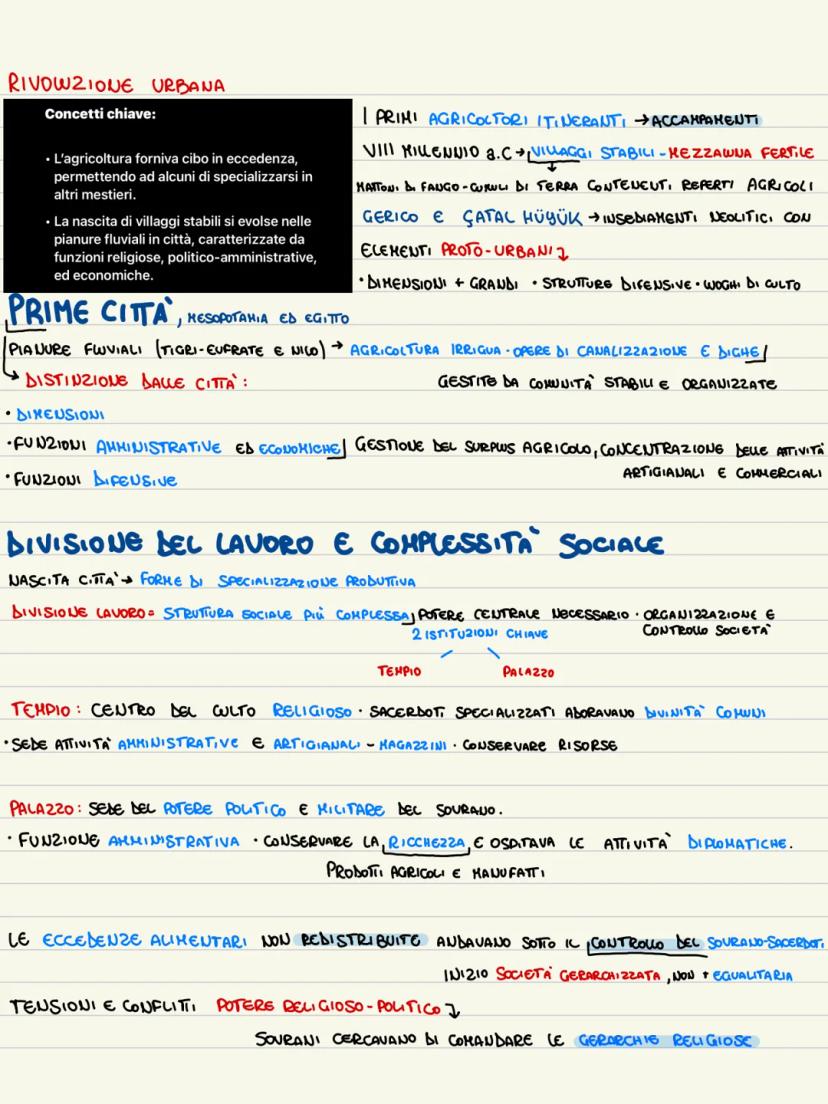 RIVOLUZIONE URBANA
Concetti chiave:
• L'agricoltura forniva cibo in eccedenza,
permettendo ad alcuni di specializzarsi in
altri mestieri.
• La nascita di villaggi stabili si evolse nelle
pianure fluviali in città, caratterizzate da
funzioni religiose, politico-amministrative,
ed economiche.
I PRIMI AGRICOLTORI ITINERANTI → ACCAMPAMENTI
VIII MILLENNIO a.C → VILLAGGI STABILI - MEZZALUNA FERTILE
MATTONI DI FANGO - CUMULI DI TERRA CONTENEUTI REPERTI AGRICOLI
GERICO E ÇATAL HÜYÜK → INSEDIAMENTI NEOLITICI CON
ELEMENTI PROTO-URBANI ↴
• DIMENSIONI + GRANDI • STRUTTURE DIFENSIVE • LUOGHI DI CULTO
PRIME CITTÀ, MESOPOTAMIA ED EGITTO
PIANURE FLUVIALI (TIGRI-EUFRATE E NILO) → AGRICOLTURA IRRIGUA • OPERE DI CANALIZZAZIONE E DIGHE
GESTITE DA COMUNITÀ STABILI E ORGANIZZATE
↳ DISTINZIONE DALLE CITTÀ:
• DIMENSIONI
• FUNZIONI AMMINISTRATIVE ED ECONOMICHE GESTIONE DEL SURPLUS AGRICOLO, CONCENTRAZIONE DELLE ATTIVITÀ
ARTIGIANALI E COMMERCIALI
• FUNZIONI DIFENSIVE
DIVISIONE DEL LAVORO E COMPLESSITÀ SOCIALE
NASCITA CITTÀ → FORME DI SPECIALIZZAZIONE PRODUTTIVA
DIVISIONE LAVORO = STRUTTURA SOCIALE PIÙ COMPLESSA POTERE CENTRALE NECESSARIO • ORGANIZZAZIONE E
CONTROLLO SOCIETÀ
2 ISTITUZIONI CHIAVE
TEMPIO PALAZZO
TEMPIO: CENTRO DEL CULTO RELIGIOSO • SACERDOTI SPECIALIZZATI ADORAVANO DIVINITÀ COMUNI
• SEDE ATTIVITÀ AMMINISTRATIVE E ARTIGIANALI - MAGAZZINI • CONSERVARE RISORSE
PALAZZO: SEDE DEL POTERE POLITICO E MILITARE DEL SOVRANO.
• FUNZIONE AMMINISTRATIVA • CONSERVARE LA RICCHEZZA E OSPITAVA LE ATTIVITÀ DIPLOMATICHE.
PRODOTTI AGRICOLI E MANUFATTI
LE ECCEDENZE ALIMENTARI NON REDISTRIBUITE ANDAVANO SOTTO IL CONTROLLO DEL SOVRANO-SACERDOTI
INIZIO SOCIETÀ GERARCHIZZATA, NON + EGUALITARIA
TENSIONI E CONFLITTI POTERE RELIGIOSO-POLITICO ↴
SOVRANI CERCAVANO DI COMANDARE LE GERARCHIE RELIGIOSE